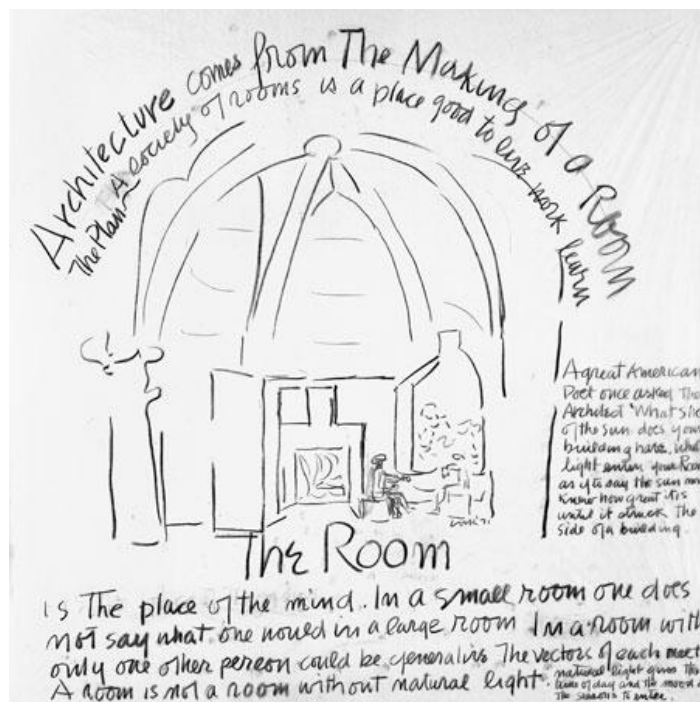 Architecture comes from The Making of a Room
The Plan A society of rooms is a place good to live work learn
A great American
Poet once asked The
Architect 'What slic
of the sun does your
building have, what
light enters your Room
as if to say the sun never
knew how great it is
until it struck The
side of a building.
The Room
is The place of the mind. In a small room one does
not say what one would in a large room In a room with
only one other person could be generative The vectors of each meet
A room is not a room without natural light.
natural light gives The
time of day and the mood of
The seasons to enter.